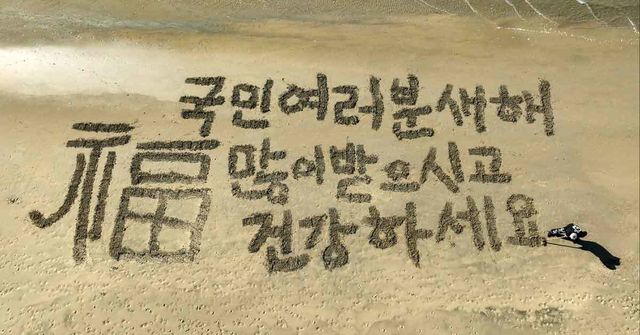 福
국민여러분새해
많이받으시고
건강하세요